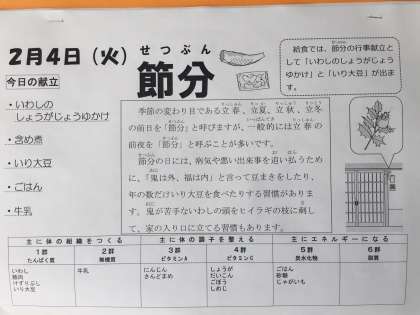 2月4日（火）
せつぶん
節分
給食では、節分の行事献立と
して「いわしのしょうがじょう
ゆかけ」と「いり大豆」が出ま
す。
今日の献立
・いわしの
しょうがじょうゆかけ
・含め煮
・いり大豆
・ごはん
・牛乳
季節の変わり目である立春、立夏、立秋、立冬
の前日を「節分」と呼びますが、一般的には立春の
前夜を「節分」と呼ぶことが多いです。
節分の日には、病気や悪い出来事を追い払うため
に、「鬼は外、福は内」と言って豆まきをしたり、
年の数だけいり大豆を食べたりする習慣がありま
す。鬼が苦手ないわしの頭をヒイラギの枝に刺し
て、家の入り口に立てる習慣もあります。
主に体の組織をつくる
主に体の調子を整える
主にエネルギーになる
1群
たんぱく質
2群
無機質
3群
ビタミンA
4群
ビタミンC
5群
炭水化物
6群
脂質
いわし
鶏肉
けずりぶし
いり大豆
牛乳
にんじん
さんどまめ
しょうが
だいこん
ごぼう
しめじ
ごはん
砂糖
じゃがいも